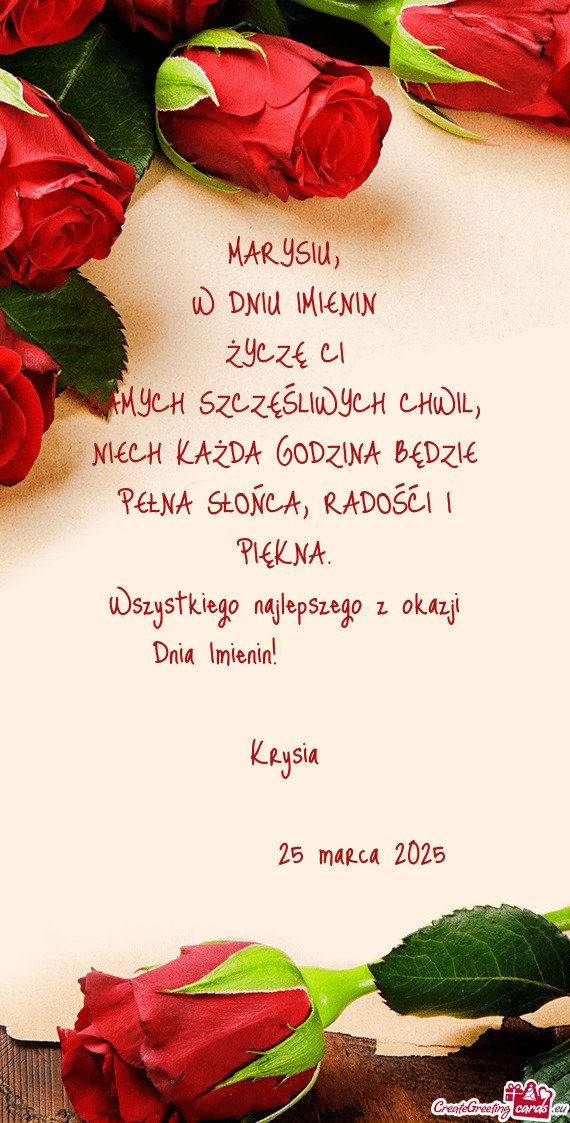 MARYSIU,
W DNIU IMIENIN
ŻYCZĘ CI
SAMYCH SZCZĘŚLIWYCH CHWIL,
NIECH KAŻDA GODZINA BĘDZIE
PEŁNA SŁOŃCA, RADOŚĆI I
PIĘKNA.
Wszystkiego najlepszego z okazji
Dnia Imienin!
Krysia
25 marca 2025
CreateGreeting cards .eu